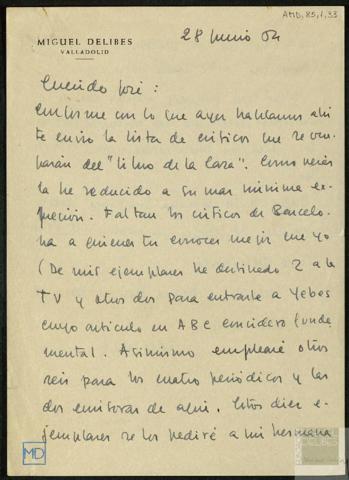 AMD, 85, 1, 33
MIGUEL DELIBES
VALLADOLID
28 junio 64
Querido José:
Conforme con lo que ayer hablamos ahí
te envío la lista de críticos que se ocu-
parán del "libro de la Caza". Como verás
la he reducido a su más mínima ex-
presión. Faltan los críticos de Barcelo-
na a quienes tú conoces mejor que yo
(De mis ejemplares he destinado 2 a la
TV y otros dos para enviarle a Yebes
cuyo artículo en ABC considero funda
mental. Asimismo emplearé otros
seis para los cuatro periódicos y las
dos emisoras de aquí. Estos diez e-
jemplares se los pediré a mi hermana
MD
DELIBES